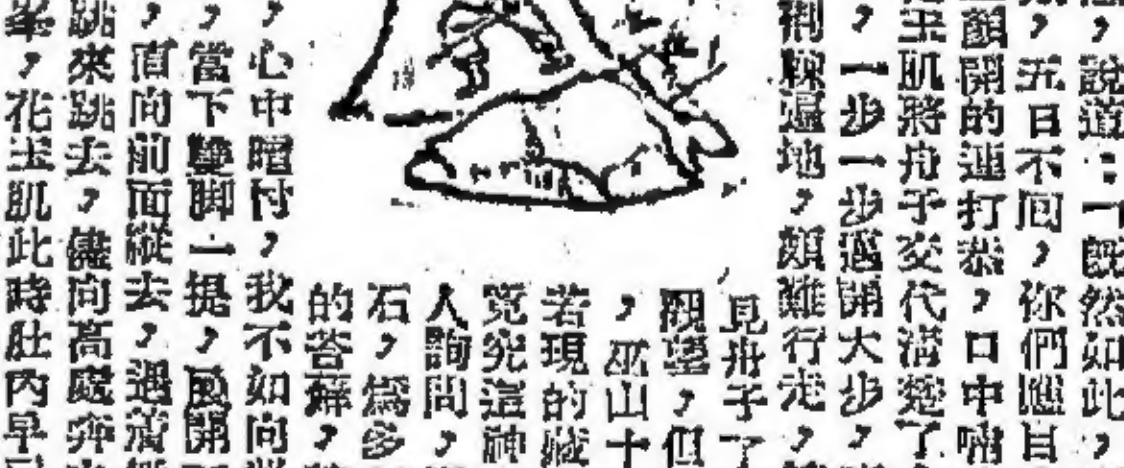 ，說道：「既然如此，
，五日不囘，你們逕自
顏開的連打恭，口中
玉肌將舟子交代清楚了
，一步一步邁開大步，
荆棘遍地，頗難行走，
見舟子了
觀望，但
，巫山十
若現的藏
究這神
人詢問，
石，爲多
的苔蘚，
，心中暗忖，我不如向
，當下雙脚一提，開
，直向前面縱去，遇
跳來跳去，儘向高處奔
，花玉肌此時肚內早